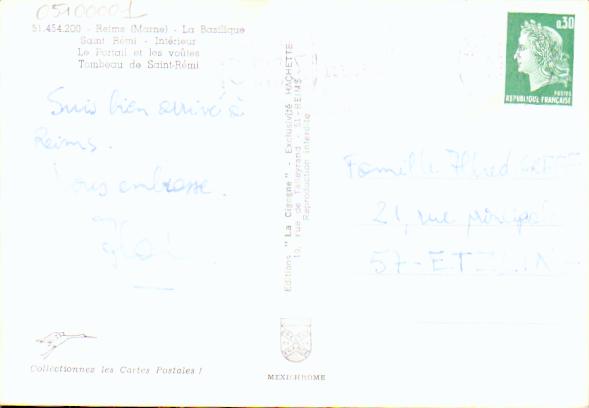 05100001
51.454.200 - Reims (Marne) - La Basilique
Saint Rémi - Intérieur
Le Portail et les voûtes
Tombeau de Saint-Rémi
Suis bien arrivé à
Reims.
Vous embrasse.
Editions "La Cigogne" - Exclusivité HACHETTE
19, rue de Talleyrand - 51-REIMS -
Reproduction interdite
0,30
POSTES
REPUBLIQUE FRANÇAISE
Famille Alfred
21, rue principale
57-
Collectionnez les Cartes Postales !
MEXICHROME